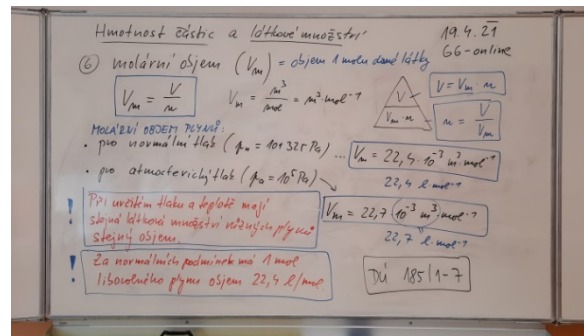 Hmotnost částic a látkové množství
19.4.21
G6-online
⑥ molární objem (Vm) = objem 1 molu dané látky
Vm = V/n
Vm = m³/mol = m³·mol⁻¹
V
Vm·n
V = Vm·n
n = V/Vm
MOLÁRNÍ OBJEM PLYNŮ:
• pro normální tlak (pn = 101 325 Pa) ... Vm = 22,4·10⁻³ m³·mol⁻¹
22,4 l·mol⁻¹
• pro atmosférický tlak (pa = 10⁵ Pa)
Vm = 22,7 (10⁻³ m³)·mol⁻¹
22,7 l·mol⁻¹
! Při určitém tlaku a teplotě mají
stejná látková množství různých plynů
stejný objem.
! Za normálních podmínek má 1 mol
libovolného plynu objem 22,4 l/mol
DÚ 185/1-7